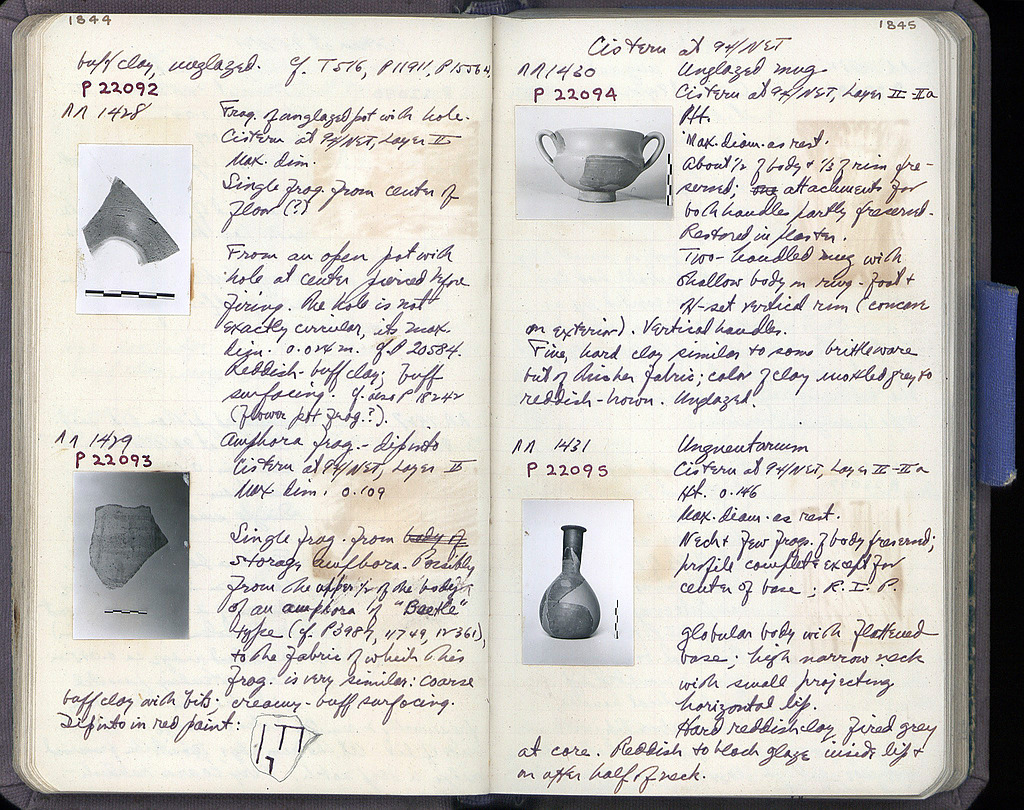 1844
buff clay, unglazed. Cf. T 516, P 11911, P 15564
P 22092
ΛΛ 1428
Frag. of unglazed pot with hole.
Cistern at 94/NET, Layer II
Max. dim.
Single frag. from center of
floor (?)
From an open pot with
hole at center pierced before
firing. The hole is not
exactly circular, its max.
dim. 0.024 m. cf. P 20584.
Reddish-buff clay; buff
surfacing. Cf. also P 18242
(flower pot frag.?).
ΛΛ 1429
P 22093
Amphora frag. - dipinto
Cistern at 94/NET, Layer II
Max dim. 0.109
Single frag. from body of
storage amphora. Possibly
from the upper ½ of the body
of an amphora of "Beetle"
type (cf. P 3987, 11749, 12361),
to the fabric of which this
frag. is very similar: coarse
buff clay with bits; creamy-buff surfacing.
Dipinto in red paint:
1845
Cistern at 94/NET
ΛΛ 1430
P 22094
Unglazed mug
Cistern at 94/NET, Layer II-IIa
Ht.
Max. diam. as rest.
About ½ of body & ⅓ of rim pre-
served; attachments for
both handles partly preserved.
Restored in plaster.
Two-handled mug with
shallow body on ring-foot &
off-set vertical rim (concave
on exterior). Vertical handles.
Fine, hard clay similar to some brittleware
but of thicker fabric; color of clay mottled grey to
reddish-brown. Unglazed.
ΛΛ 1431
P 22095
Unguentarium
Cistern at 94/NET, Layer II-IIa
Ht. 0.146
Max. diam. as rest.
Neck & few frags. of body preserved;
profile complete except for
center of base; R.I.P.
globular body with flattened
base; high narrow neck
with small projecting
horizontal lip.
Hard reddish clay fired grey
at core. Reddish to black glaze inside lip &
on upper half of neck.